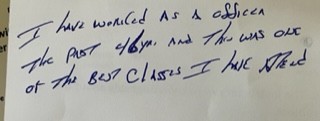 I have worked As A officer
The PAST yr. And This was one
of The Best Classes I have